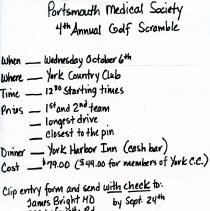 Portsmouth Medical Society
4th Annual Golf Scramble
When — Wednesday October 6th
Where — York Country Club
Time — 12:30 Starting times
Prizes — 1st and 2nd team
— longest drive
— closest to the pin
Dinner — York Harbor Inn (cash bar)
Cost — $79.00 ($49.00 for members of York C.C.)
Clip entry form and send with check to:
James Bright MD by Sept 24th